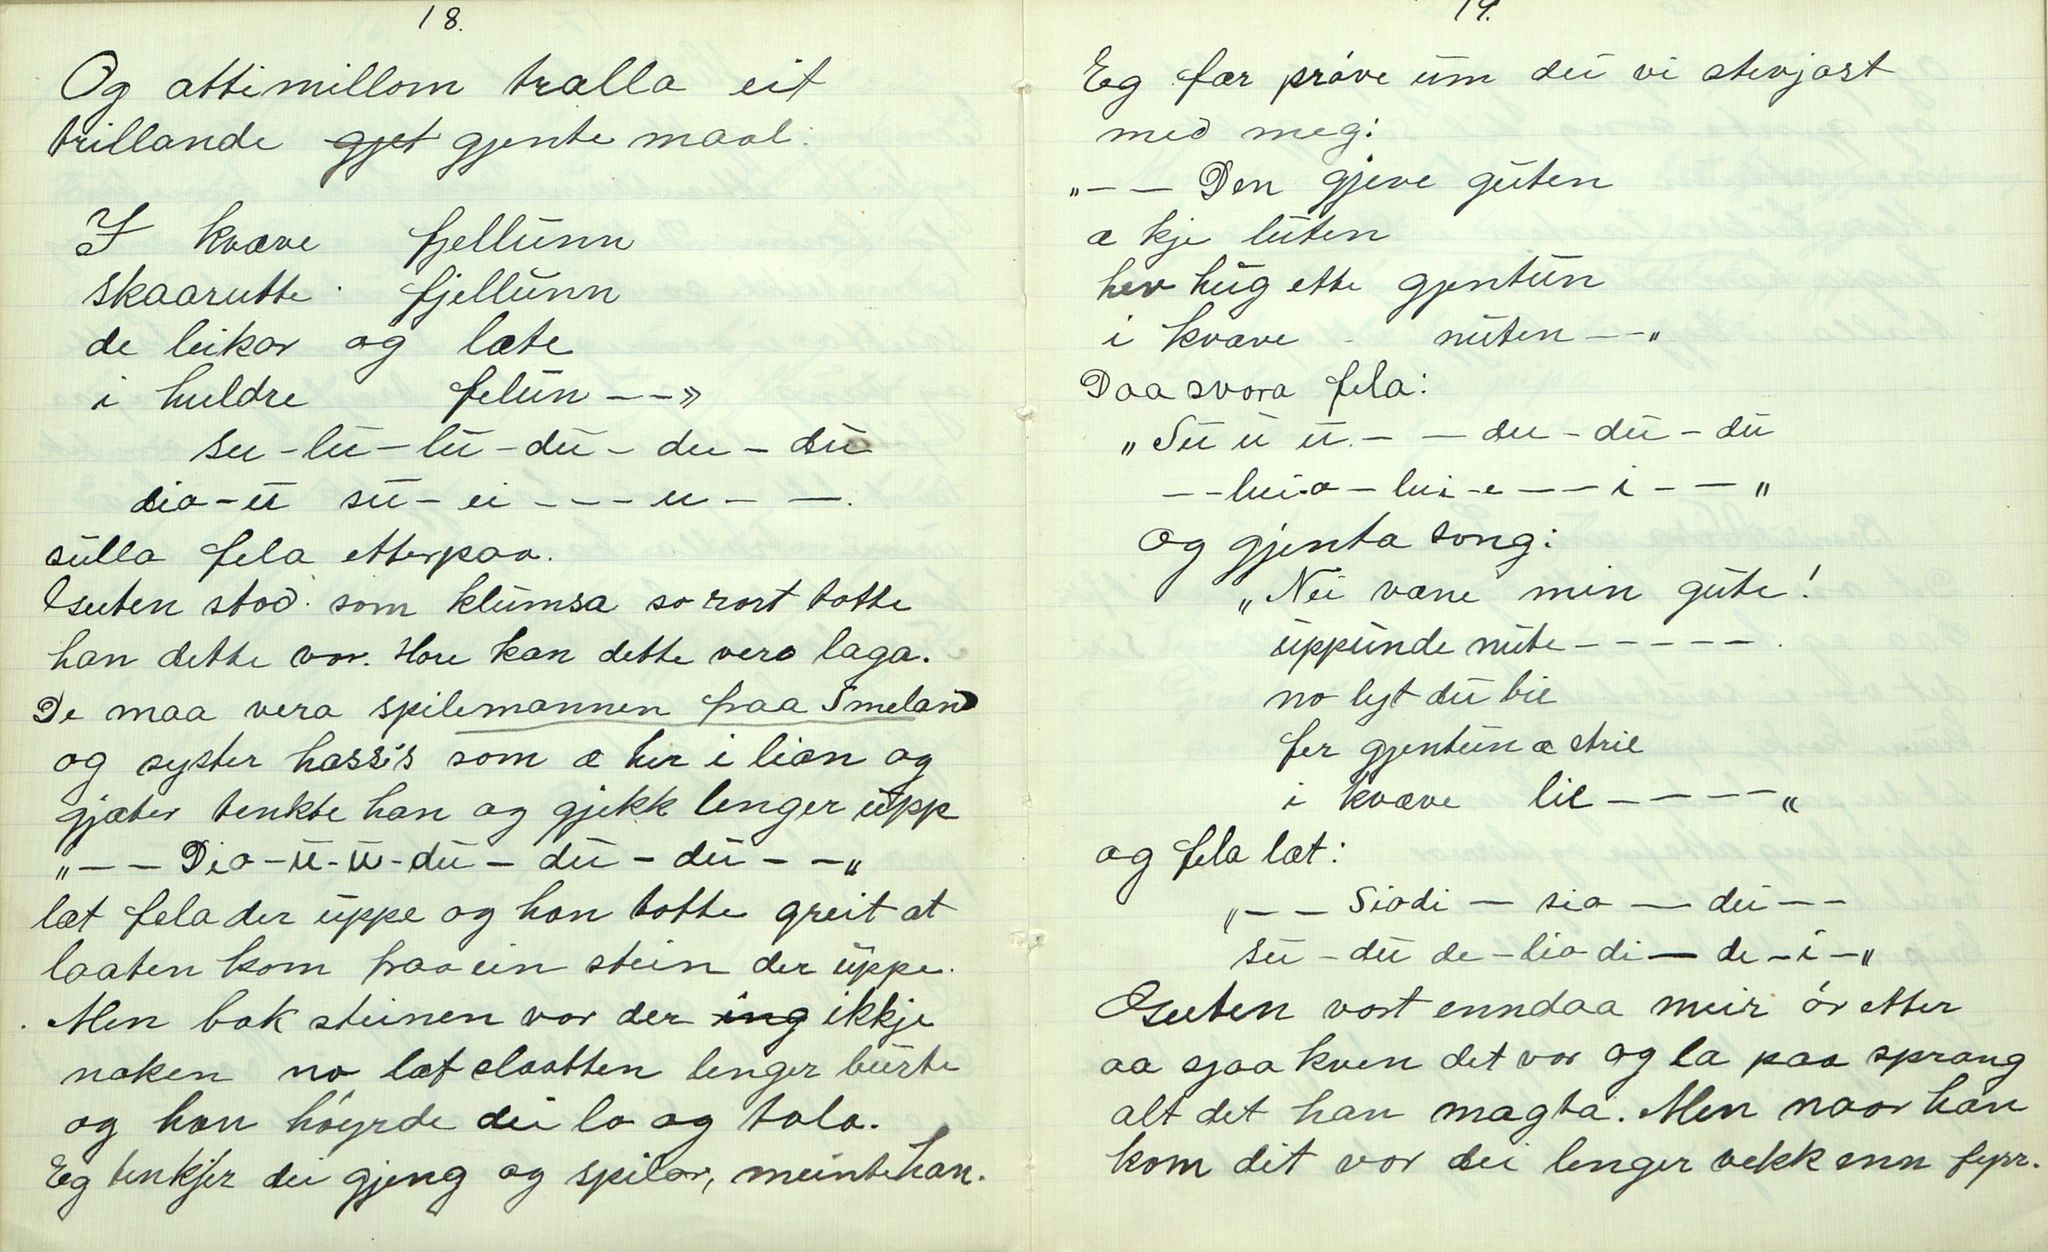 18.
Og attimillom tralla eit
trillande gjet gjente maal:
I kvæve fjellunn
skaarutte fjellunn
de leikar og læte
i huldre felun -- »
su - lu - lu - du - du - du
dia - u su - ei --- u - -.
sulla fela etterpaa.
Guten stod som klumsa so rart totte
han dette var. Hore kan dette vera laga.
De maa vera spilemannen fraa Smeland
og syster hassis som æ her i lien og
gjæter tenkte han og gjekk lenger upp
„ -- Dia - u - u - du - du - du -- „
læt fela der uppe og han totte greit at
laaten kom fraa ein stein der uppe.
Men bak steinen var der ing ikkje
naken no læt slaatten lenger burte
og han høyrde dei lo og tala.
Eg tenkjer dei gjeng og spilar, meinte han.
19.
Eg fær prøve um dei vi stevjast
med meg:
„ -- Den gjeve guten
æ kje luten
hev hug ette gjentun
i kvæve nuten -- „
Daa svora fela:
„ Su u u. - - du - du - du
-- lui-a - lui - e -- i -- „
og gjenta song:
„ Nei væne min gute!
uppunde nute -----.
no lyt du bie
fer gjentun æ strie
i kvæve lie ---- „
og fela læt:
„ -- Siadi - sia - dei --
su - du de - lia di - de - i - „
Guten vart enndaa meir ör etter
aa sjaa kven det var og la paa sprang
alt det han magta. Men naar han
kom dit var dei lenger vekk enn fyrr.